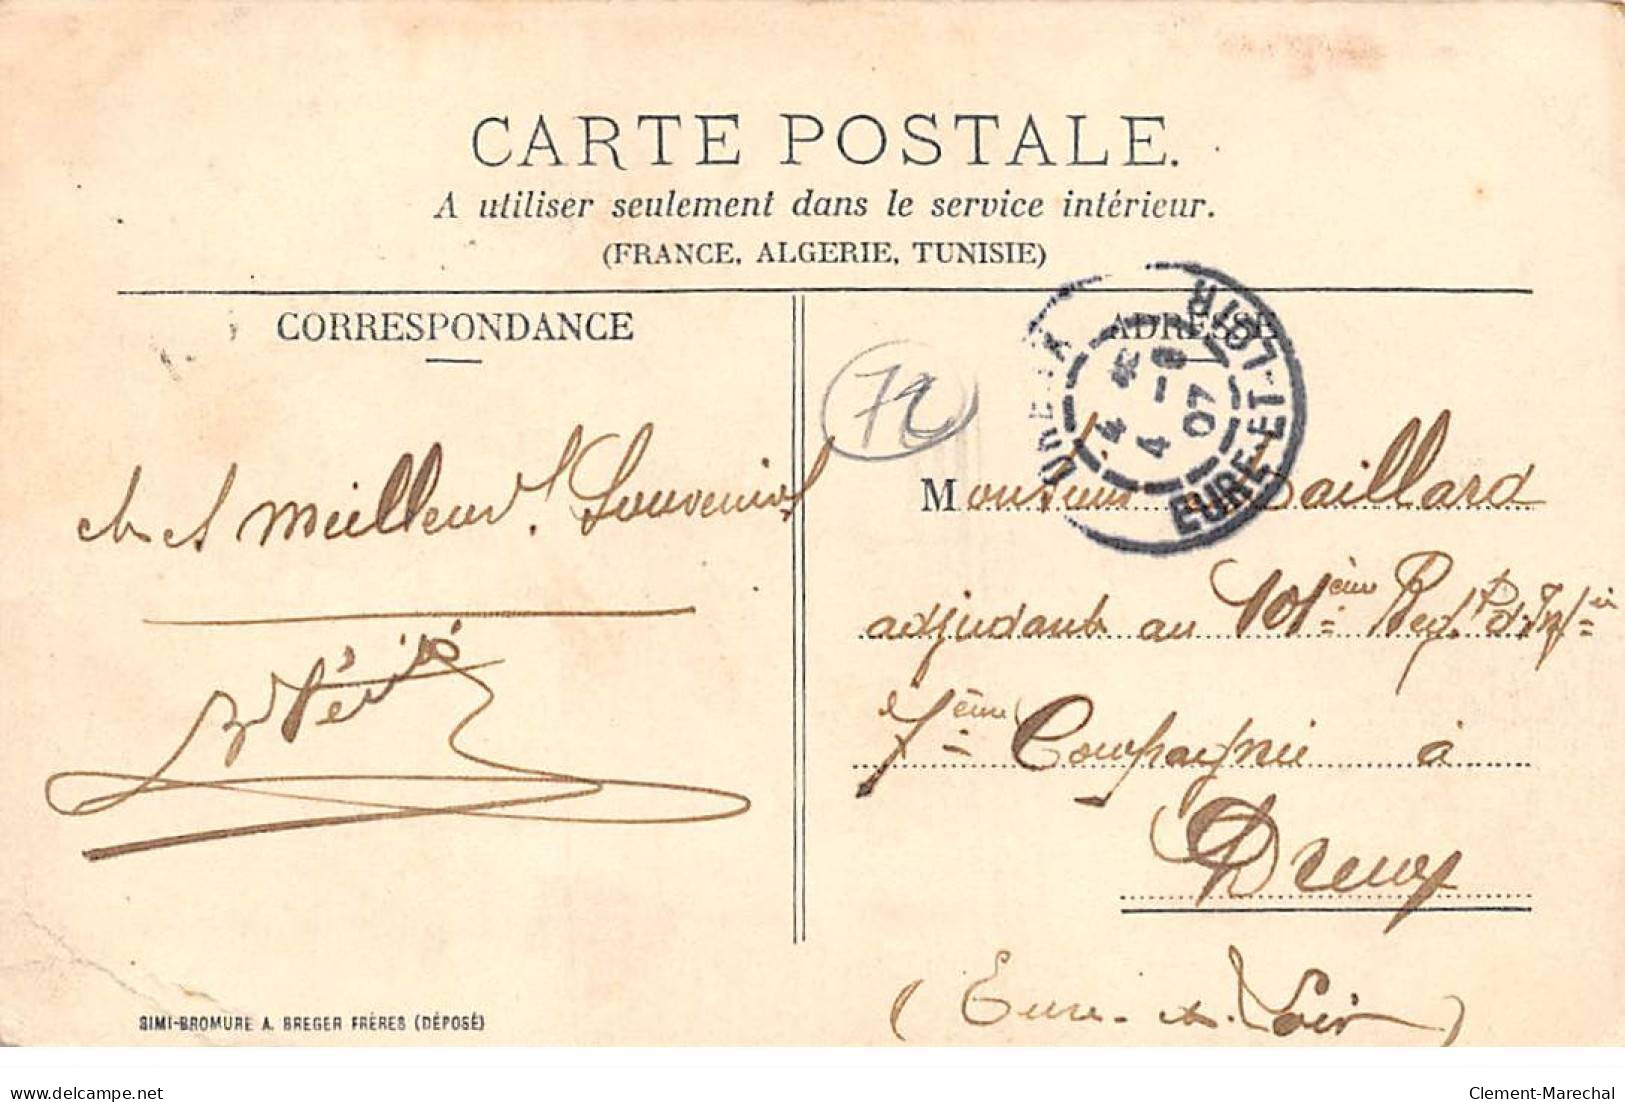 CARTE POSTALE.
A utiliser seulement dans le service intérieur.
(FRANCE, ALGERIE, TUNISIE)
CORRESPONDANCE
ADRESSE
72
DREUX
EURE-ET-LOIR
4 4
07
meilleurs Souvenirs
Monsieur Baillard
adjudant au 101ème Regt d'Infie
7ème Compagnie à
Dreux
(Eure-et-Loir)
SIMI-BROMURE A. BREGER FRÈRES (DÉPOSÉ)
delcampe.net
Clement-Marechal